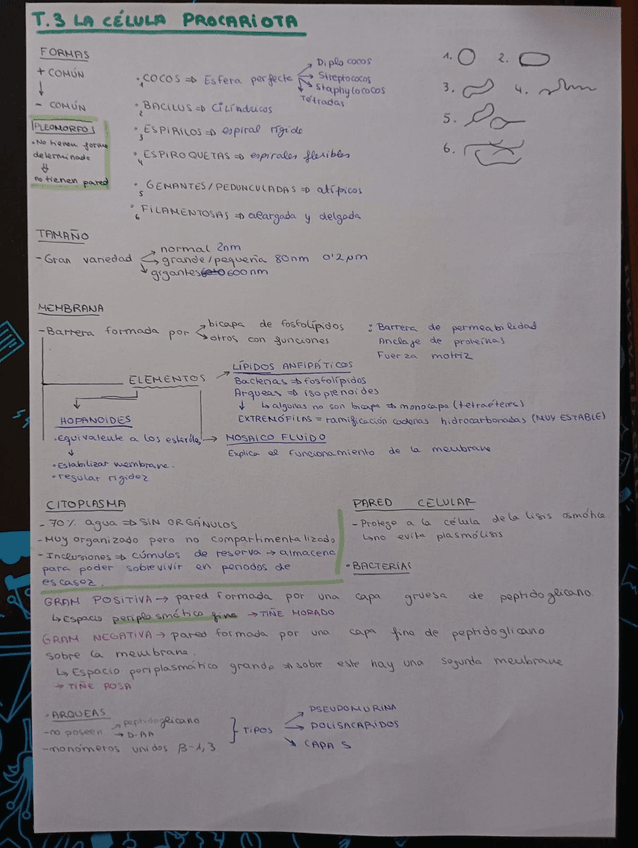 T.3 LA CÉLULA PROCARIOTA
FORMAS
+ COMÚN
↓
- COMÚN
PLEOMORFOS
• No tienen forma
determinada
⇓
no tienen pared
1 COCOS ⇒ Esfera perfecta → Diplococos
→ Streptococos
→ Staphylococos
→ Tétradas
2 BACILUS ⇒ Cilíndricos
3 ESPIRILOS ⇒ espiral rígide
4 ESPIROQUETAS ⇒ espirales flexibles
5 GEMANTES/PEDUNCULADAS ⇒ atípicos
6 FILAMENTOSAS ⇒ alargada y delgada
1. 2.
3. 4.
5.
6.
TAMAÑO
- Gran variedad → normal 2nm
→ grande/pequeña 80nm 0'2 µm
→ gigantes 600nm
MEMBRANA
- Barrera formada por → bicapa de fosfolípidos
→ otros con funciones
: Barrera de permeabilidad
Anclaje de proteínas
Fuerza motriz
ELEMENTOS
LÍPIDOS ANFIPÁTICOS
Bacterias ⇒ fosfolípidos
Arqueas ⇒ isoprenoides
↳ algunas no son bicapa ⇒ monocapa (tetraéteres)
EXTREMÓFILAS = ramificación cadenas hidrocarbonadas (MUY ESTABLE)
HOPANOIDES
• equivalente a los esteroles
↓
• Estabilizar membrana.
• regular rigidez
MOSAICO FLUÍDO
Explica el funcionamiento de la membrana
CITOPLASMA
- 70% agua ⇒ SIN ORGÁNULOS
- Muy organizado pero no compartimentalizado
- Inclusiones ⇒ cúmulos de reserva → almacena
para poder sobrevivir en periodos de
escasez.
PARED CELULAR
- Protege a la célula de la lisis osmótica
↳ no evita plasmólisis
• BACTERIAS
GRAM POSITIVA → pared formada por una capa gruesa de peptidoglicano
↳ Espacio periplasmático fino → TIÑE MORADO
GRAM NEGATIVA → pared formada por una capa fina de peptidoglicano
sobre la membrana.
↳ Espacio periplasmático grande ⇒ sobre este hay una segunda membrana
→ TIÑE ROSA
• ARQUEAS
- no poseen → peptidoglicano
→ D-AA
- monómeros unidos β-1,3
} TIPOS → PSEUDOMURINA
→ POLISACARIDOS
→ CAPA S